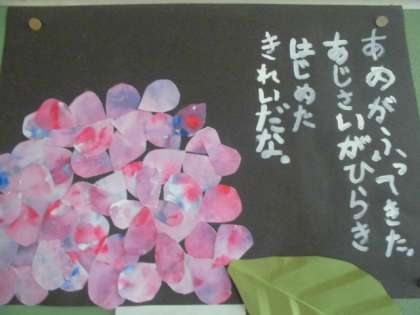 あめがふってきた。
あじさいがひらき
はじめた
きれいだな。